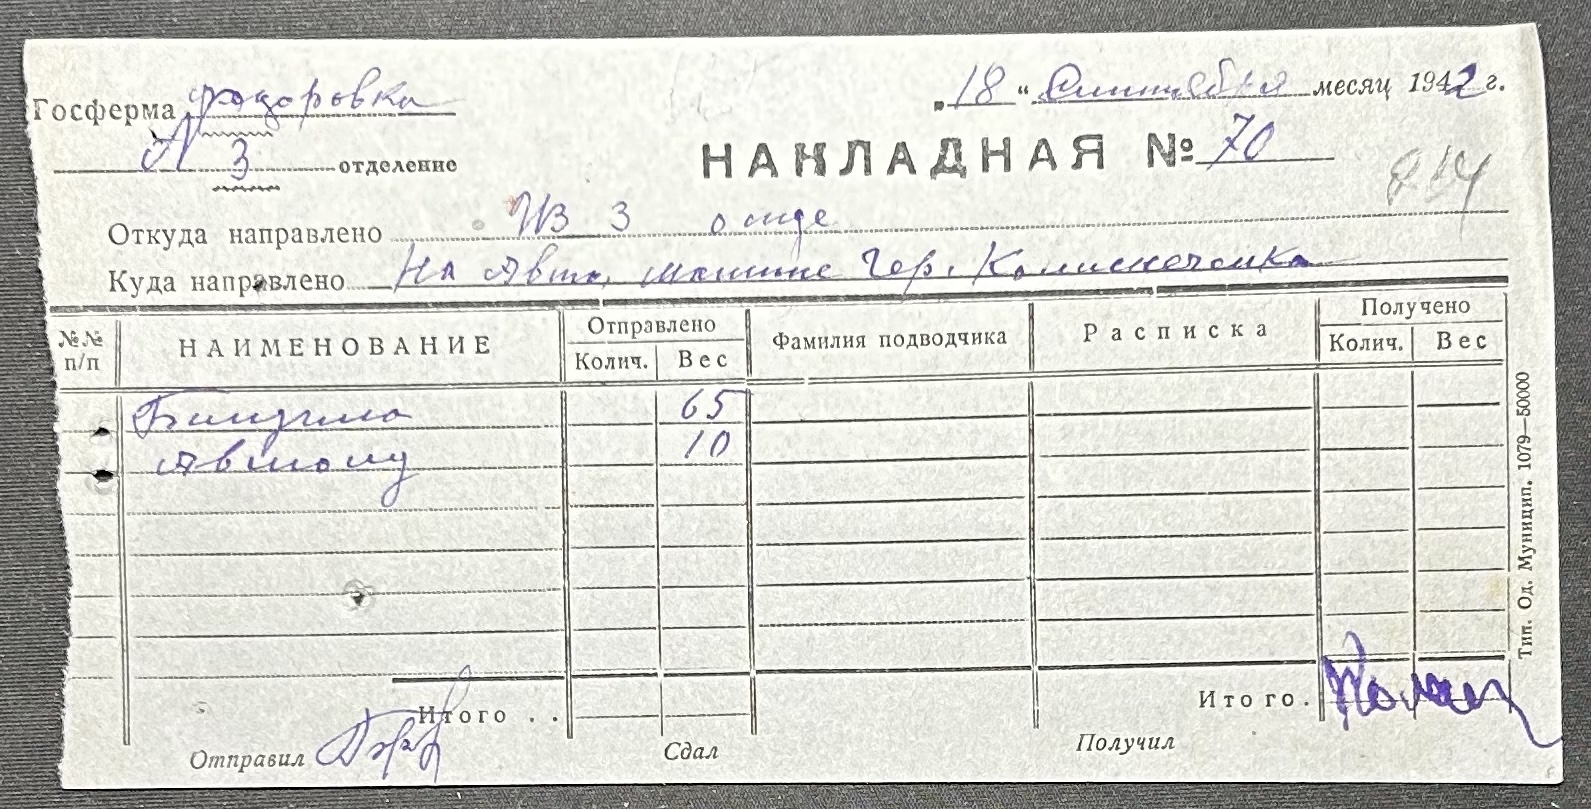 Госферма Федоровка
„18“ Сентября месяц 1942 г.
№ 3 отделение
НАКЛАДНАЯ № 70
Откуда направлено Из 3 отде
Куда направлено На Авто. машине Чер.
№№ п/п
НАИМЕНОВАНИЕ
Отправлено
Колич. Вес
Фамилия подводчика
Расписка
Получено
Колич. Вес
65
Автолу 10
Итого . .
Итого.
Отправил
Сдал
Получил
Тип. Од. Муницип. 1079—50000